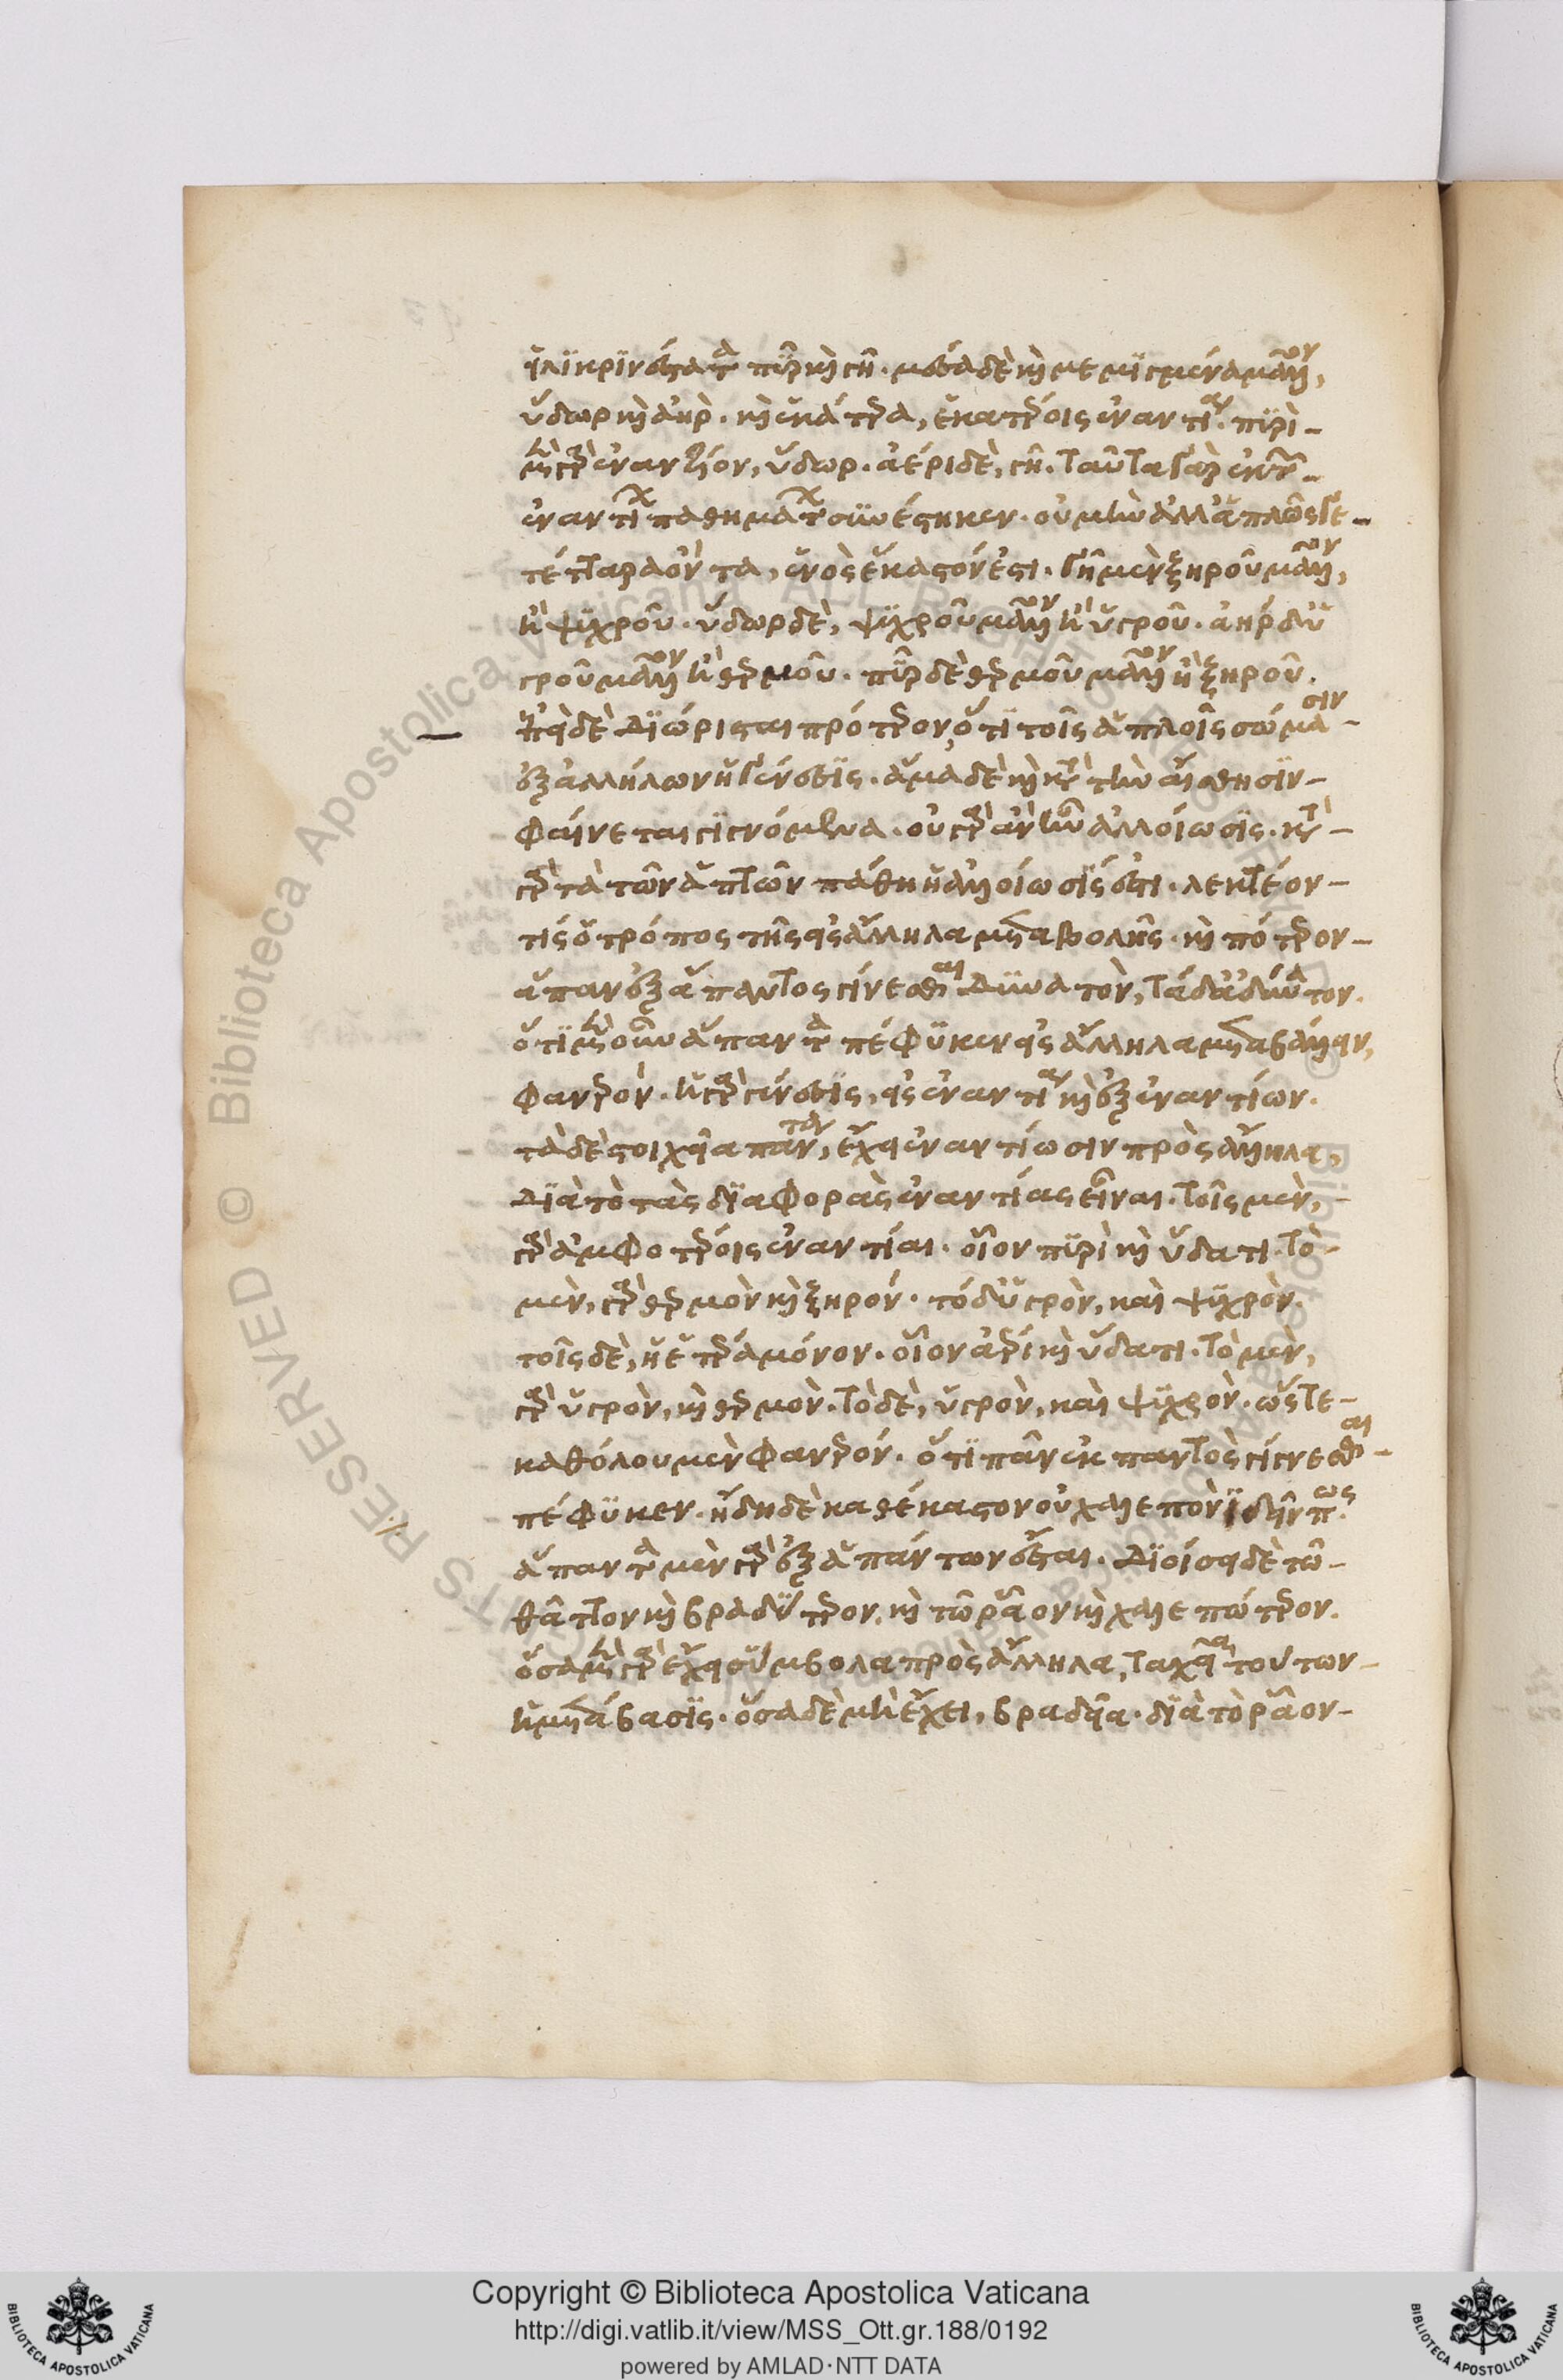 εἰλικρινέστατα πῦρ καὶ γῆ. μέσα δὲ καὶ μεμιγμένα μᾶλλον,
ὕδωρ καὶ ἀήρ. καὶ ἑκάτερα, ἑκατέροις ἐναντία. πυρὶ
μὲν γὰρ ἐναντίον, ὕδωρ. ἀέρι δὲ, γῆ. ταῦτα γὰρ ἐκ τῶν
ἐναντίων παθημάτων συνέστηκεν. οὐ μὴν ἀλλ' ἁπλῶς γε
τέτταρα ὄντα, ἑνὸς ἕκαστόν ἐστι. γῆ μὲν ξηροῦ μᾶλλον,
ἢ ψυχροῦ. ὕδωρ δὲ, ψυχροῦ μᾶλλον ἢ ὑγροῦ. ἀὴρ δ' ὑ
γροῦ μᾶλλον ἢ θερμοῦ. πῦρ δὲ θερμοῦ μᾶλλον ἢ ξηροῦ.
ἐπεὶ δὲ διώρισται πρότερον, ὅτι τοῖς ἁπλοῖς σώμασιν
ἐξ ἀλλήλων ἡ γένεσις. ἅμα δὲ καὶ κατὰ τὴν αἴσθησιν
φαίνεται γιγνόμενα. οὐ γὰρ ἂν ἦν ἀλλοίωσις. κατὰ
γὰρ τὰ τῶν ἁπτῶν πάθη ἡ ἀλλοίωσίς ἐστι. λεκτέον
τίς ὁ τρόπος τῆς εἰς ἄλληλα μεταβολῆς. καὶ πότερον
ἅπαν ἐξ ἅπαντος γίνεσθαι δυνατὸν, τὰ δ' ἀδύνατον.
ὅτι μὲν οὖν ἅπαντα πέφυκεν εἰς ἄλληλα μεταβάλλειν,
φανερόν. ἡ γὰρ γένεσις, εἰς ἐναντία καὶ ἐξ ἐναντίων.
τὰ δὲ στοιχεῖα πάντα, ἔχει ἐναντίωσιν πρὸς ἄλληλα,
διὰ τὸ τὰς διαφορὰς ἐναντίας εἶναι. τοῖς μὲν,
γὰρ ἀμφότεροις ἐναντίαι. οἷον πυρὶ καὶ ὕδατι. τὸ
μὲν, γὰρ θερμὸν καὶ ξηρόν. τὸ δ' ὑγρὸν, καὶ ψυχρὸν.
τοῖς δὲ, ἡ ἑτέρα μόνον. οἷον ἀέρι καὶ ὕδατι. τὸ μὲν,
γὰρ ὑγρὸν, καὶ θερμὸν. τὸ δὲ, ὑγρὸν, καὶ ψυχρὸν. ὥστε
καθόλου μὲν φανερόν. ὅτι πᾶν ἐκ παντὸς γίγνεσθαι
πέφυκεν. ἤδη δὲ καθ' ἕκαστον οὐ χαλεπὸν ἰδεῖν πῶς.
ἅπαντα μὲν γὰρ ἐξ ἁπάντων ἔσται. διοίσει δὲ τῶ
θᾶττον καὶ βραδύτερον, καὶ τῶ ρᾶον καὶ χαλεπώτερον.
ὅσα μὲν γὰρ ἔχει σύμβολα πρὸς ἄλληλα, ταχεῖα τούτων
ἡ μετάβασις. ὅσα δὲ μὴ ἔχει, βραδεῖα. διὰ τὸ ρᾶον
Copyright © Biblioteca Apostolica Vaticana
http://digi.vatlib.it/view/MSS_Ott.gr.188/0192
powered by AMLAD·NTT DATA